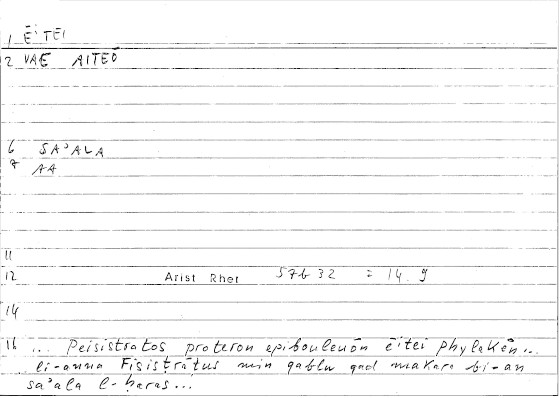 1 ĒiTEI
2 VAE AITEŌ
6 SAʾALA
7 AA
11
12 Arist Rhet 57b 32 = 14.9
14
16 ... Peisistratos proteron epibouleuōn ēitei phylakēn...
li-anna Fīsisṭrāṭus min qablu qad makara bi-an
saʾala l-ḥaras...